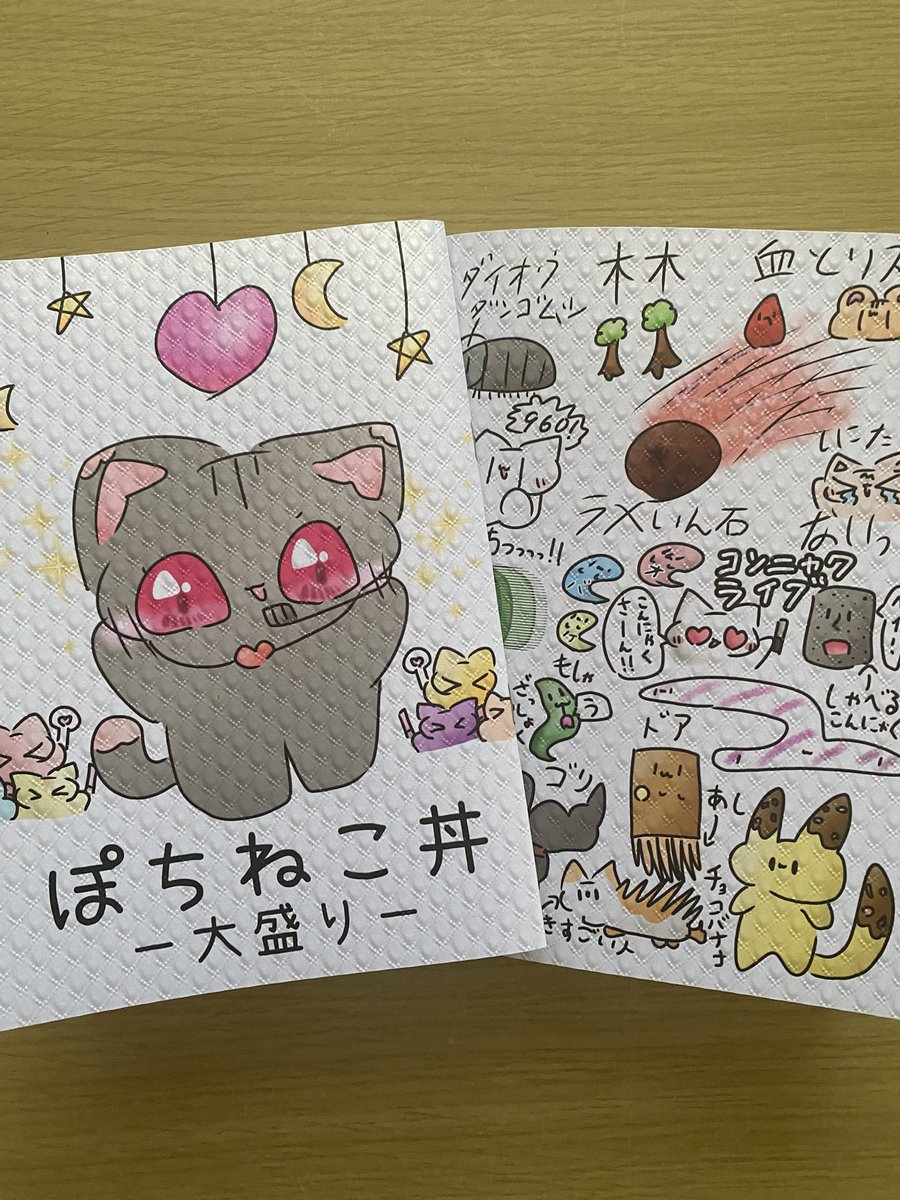 ぽちねこ丼
ー大盛りー
ダイオウ
ダンゴムシ
木木
血とりス
960!!
いにた
ラメいん石
ないっ
ちっっっっ!!
コンニャク
ライブ
こんにゃく
さーん!!
もしゃ
う
しゃべる
こんにゃく
ドア
ゴリ
あし
チョコバナナ
きすごい人